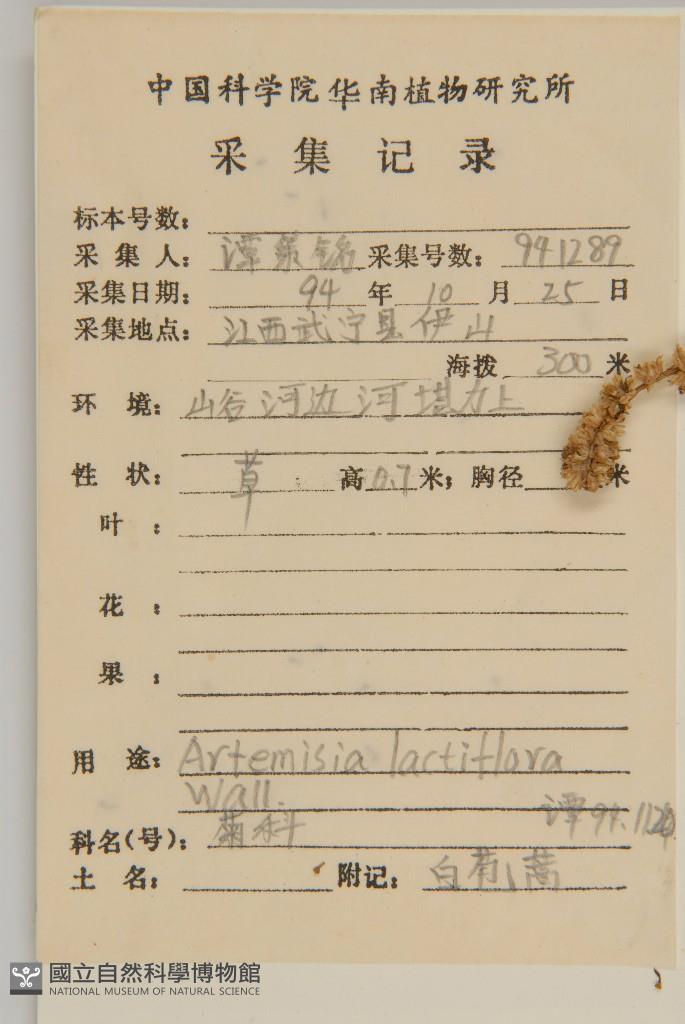 中国科学院华南植物研究所
采集记录
标本号数：
采集人：谭策铭 采集号数：941289
采集日期：94年10月25日
采集地点：江西武宁县伊山
海拨 300 米
环境：山谷河边河堪力上
性状：草 高0.7米；胸径 米
叶：
花：
果：
用途：Artemisia lactiflora
Wall.
谭94.11.20
科名(号)：菊科
土名： 附记：白苞蒿
國立自然科學博物館
NATIONAL MUSEUM OF NATURAL SCIENCE